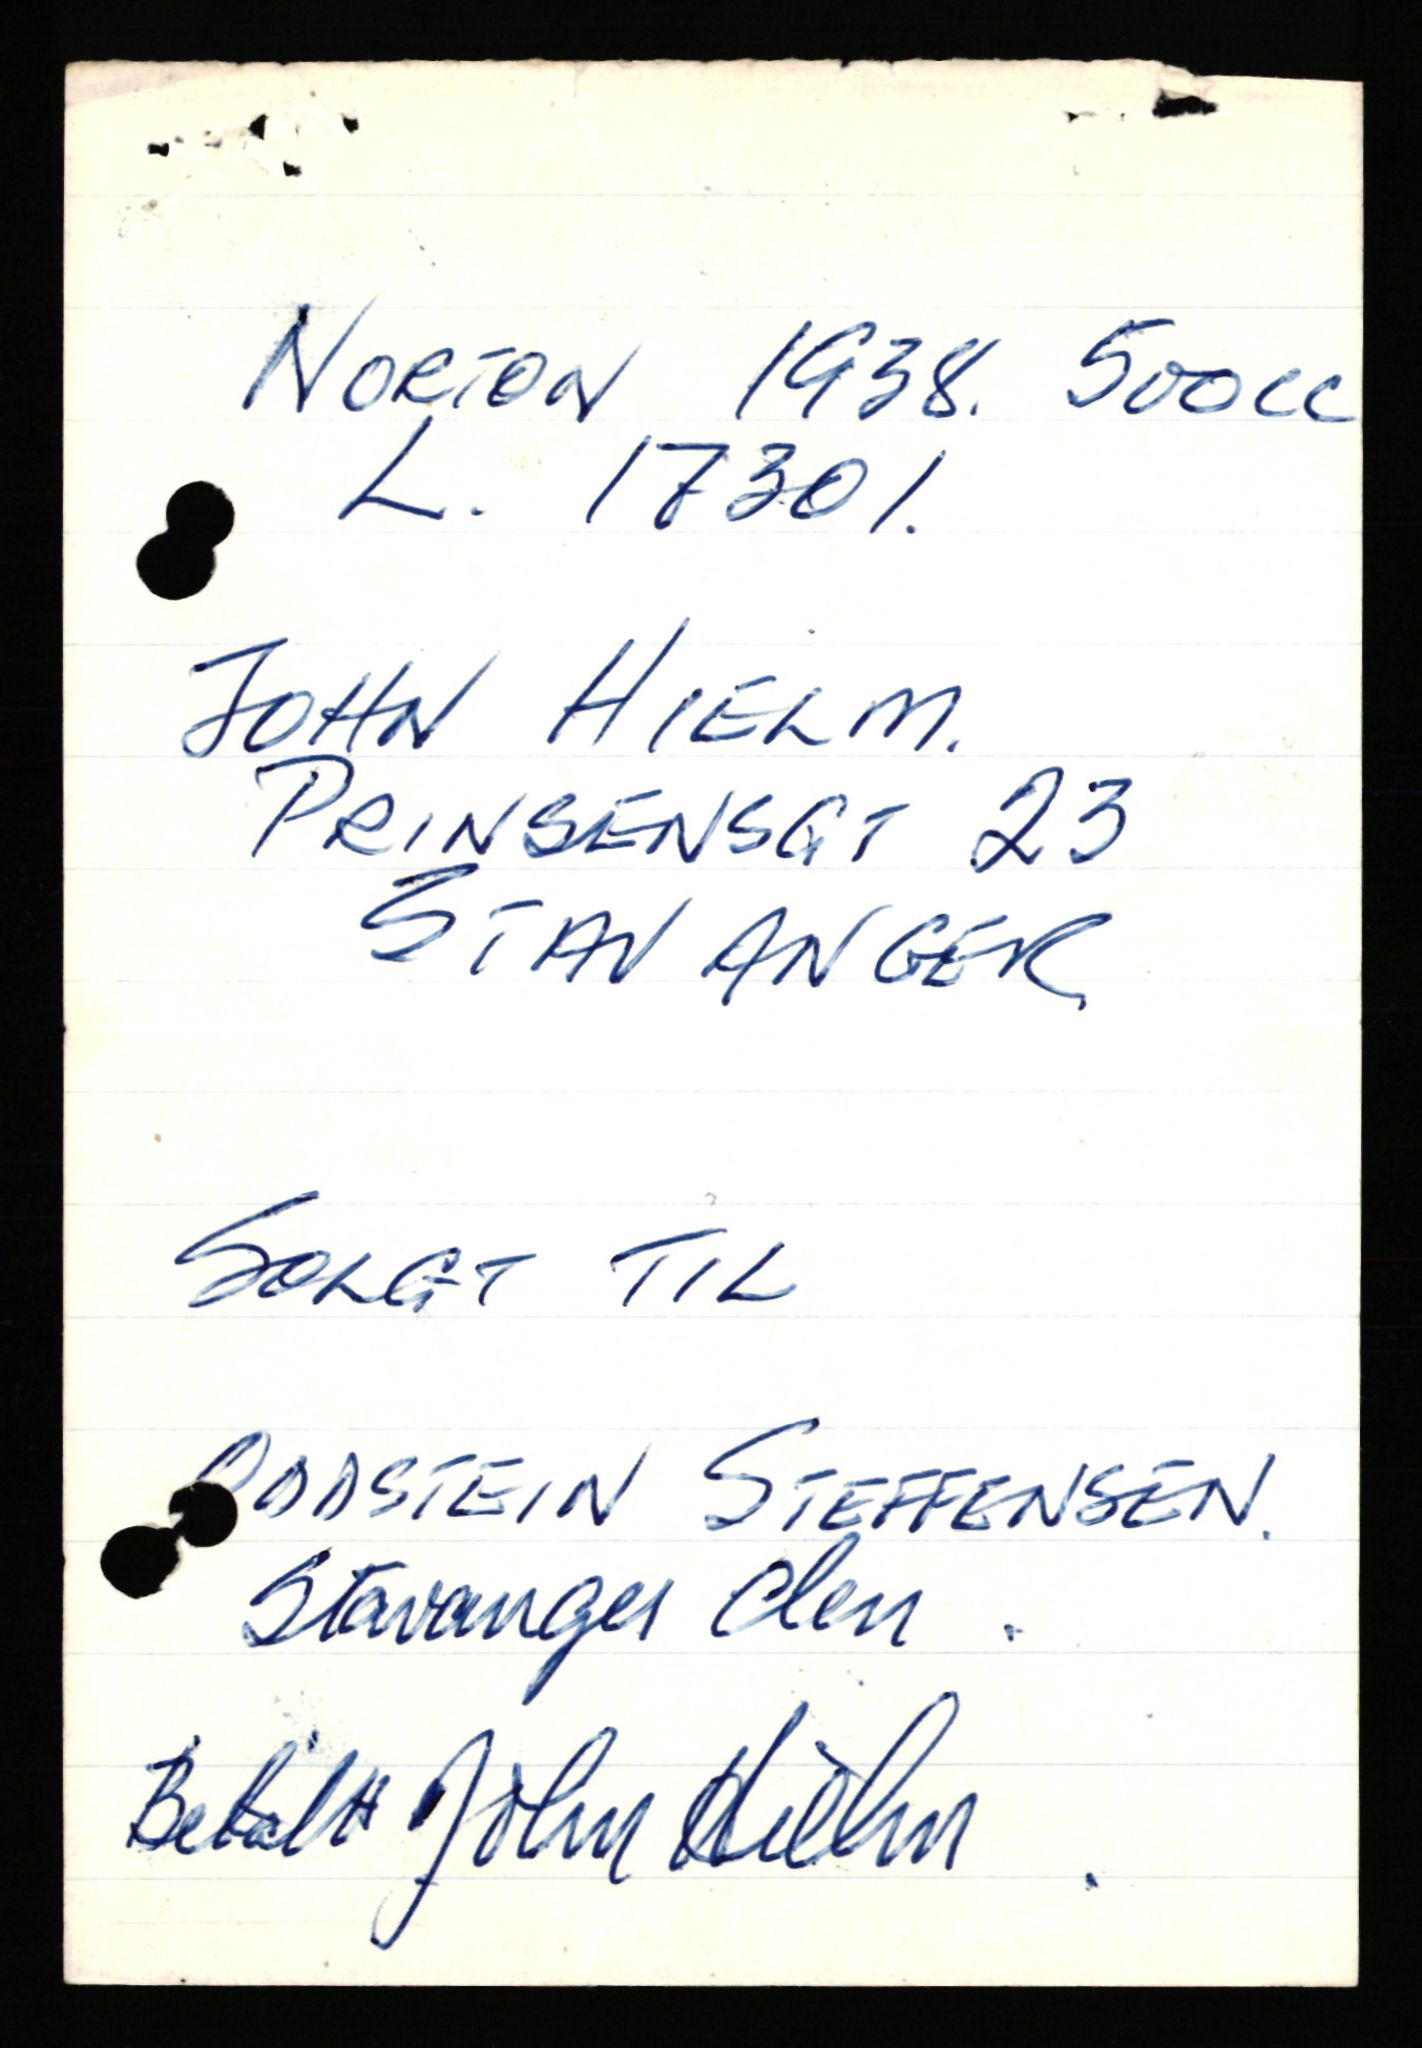 NORTON 1938. 500cc
L. 17301.
JOHN HIELM.
PRINSENSGT 23
STAVANGER
SOLGT TIL
ODDSTEIN STEFFENSEN.
Stavanger den .
Betalt John Hielm .